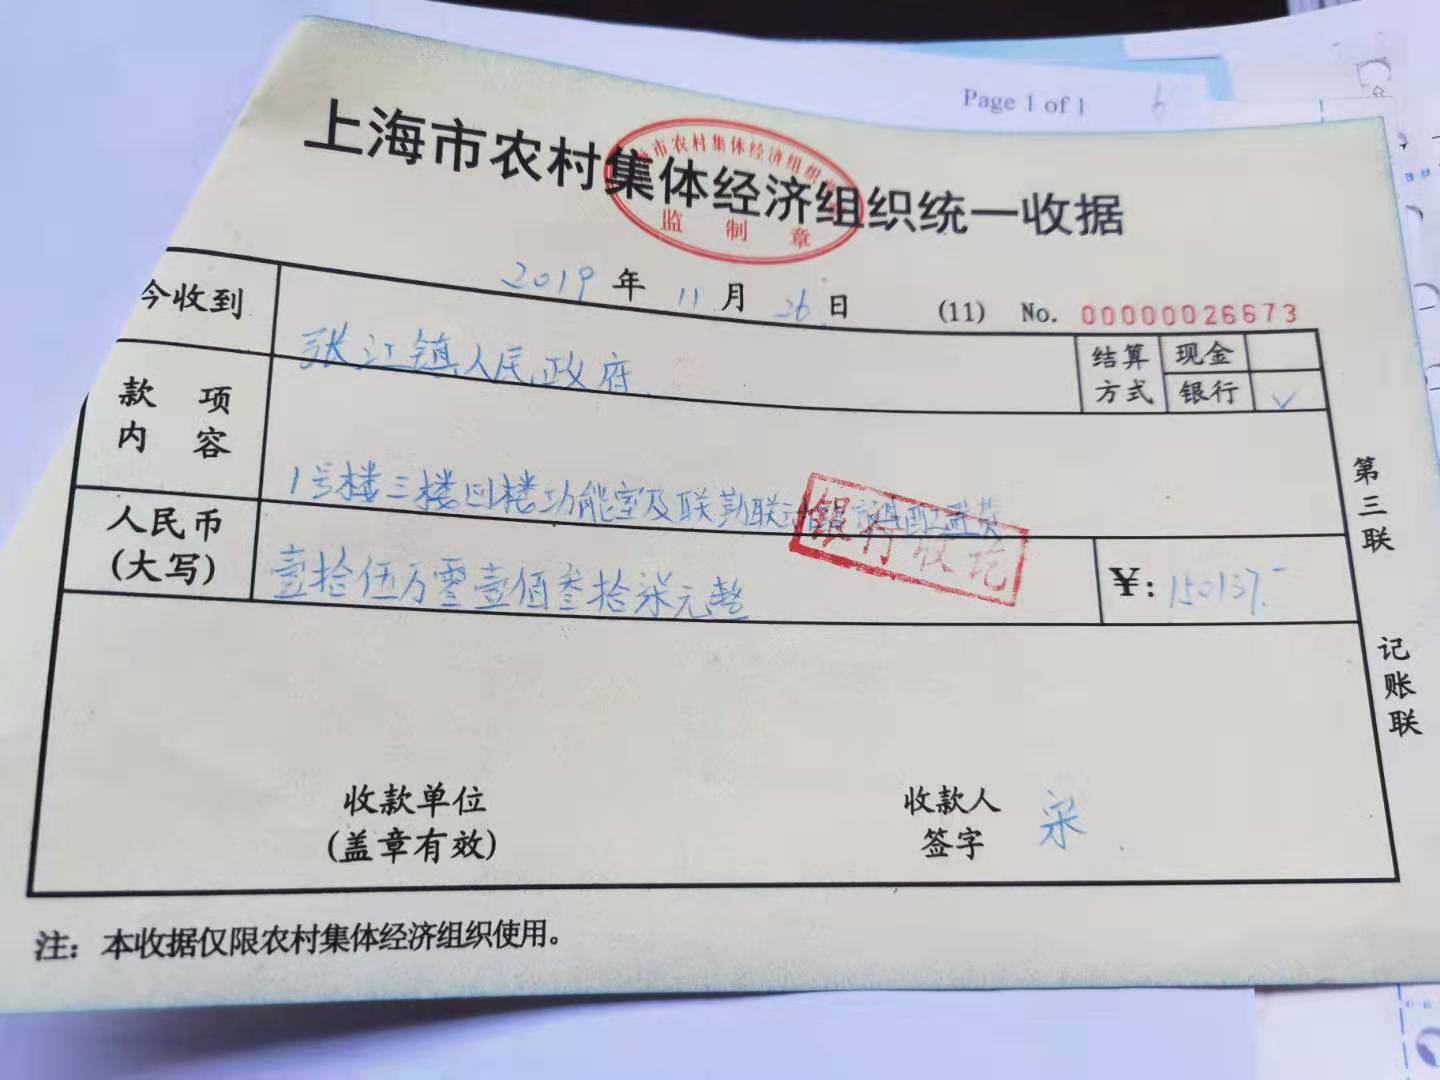 Page 1 of 1
上海市农村集体经济组织统一收据
市农村集体经济组织
监制章
2019年11月26日 (11) No. 00000026673
今收到 张江镇人民政府 结算方式 现金 银行 ✓
款项内容 1号楼三楼四楼功能室及联勤联动
银行收讫
人民币(大写) 壹拾伍万零壹佰叁拾柒元整 ¥: 150137.-
收款单位 收款人
(盖章有效) 签字 宋
第三联
记账联
注：本收据仅限农村集体经济组织使用。